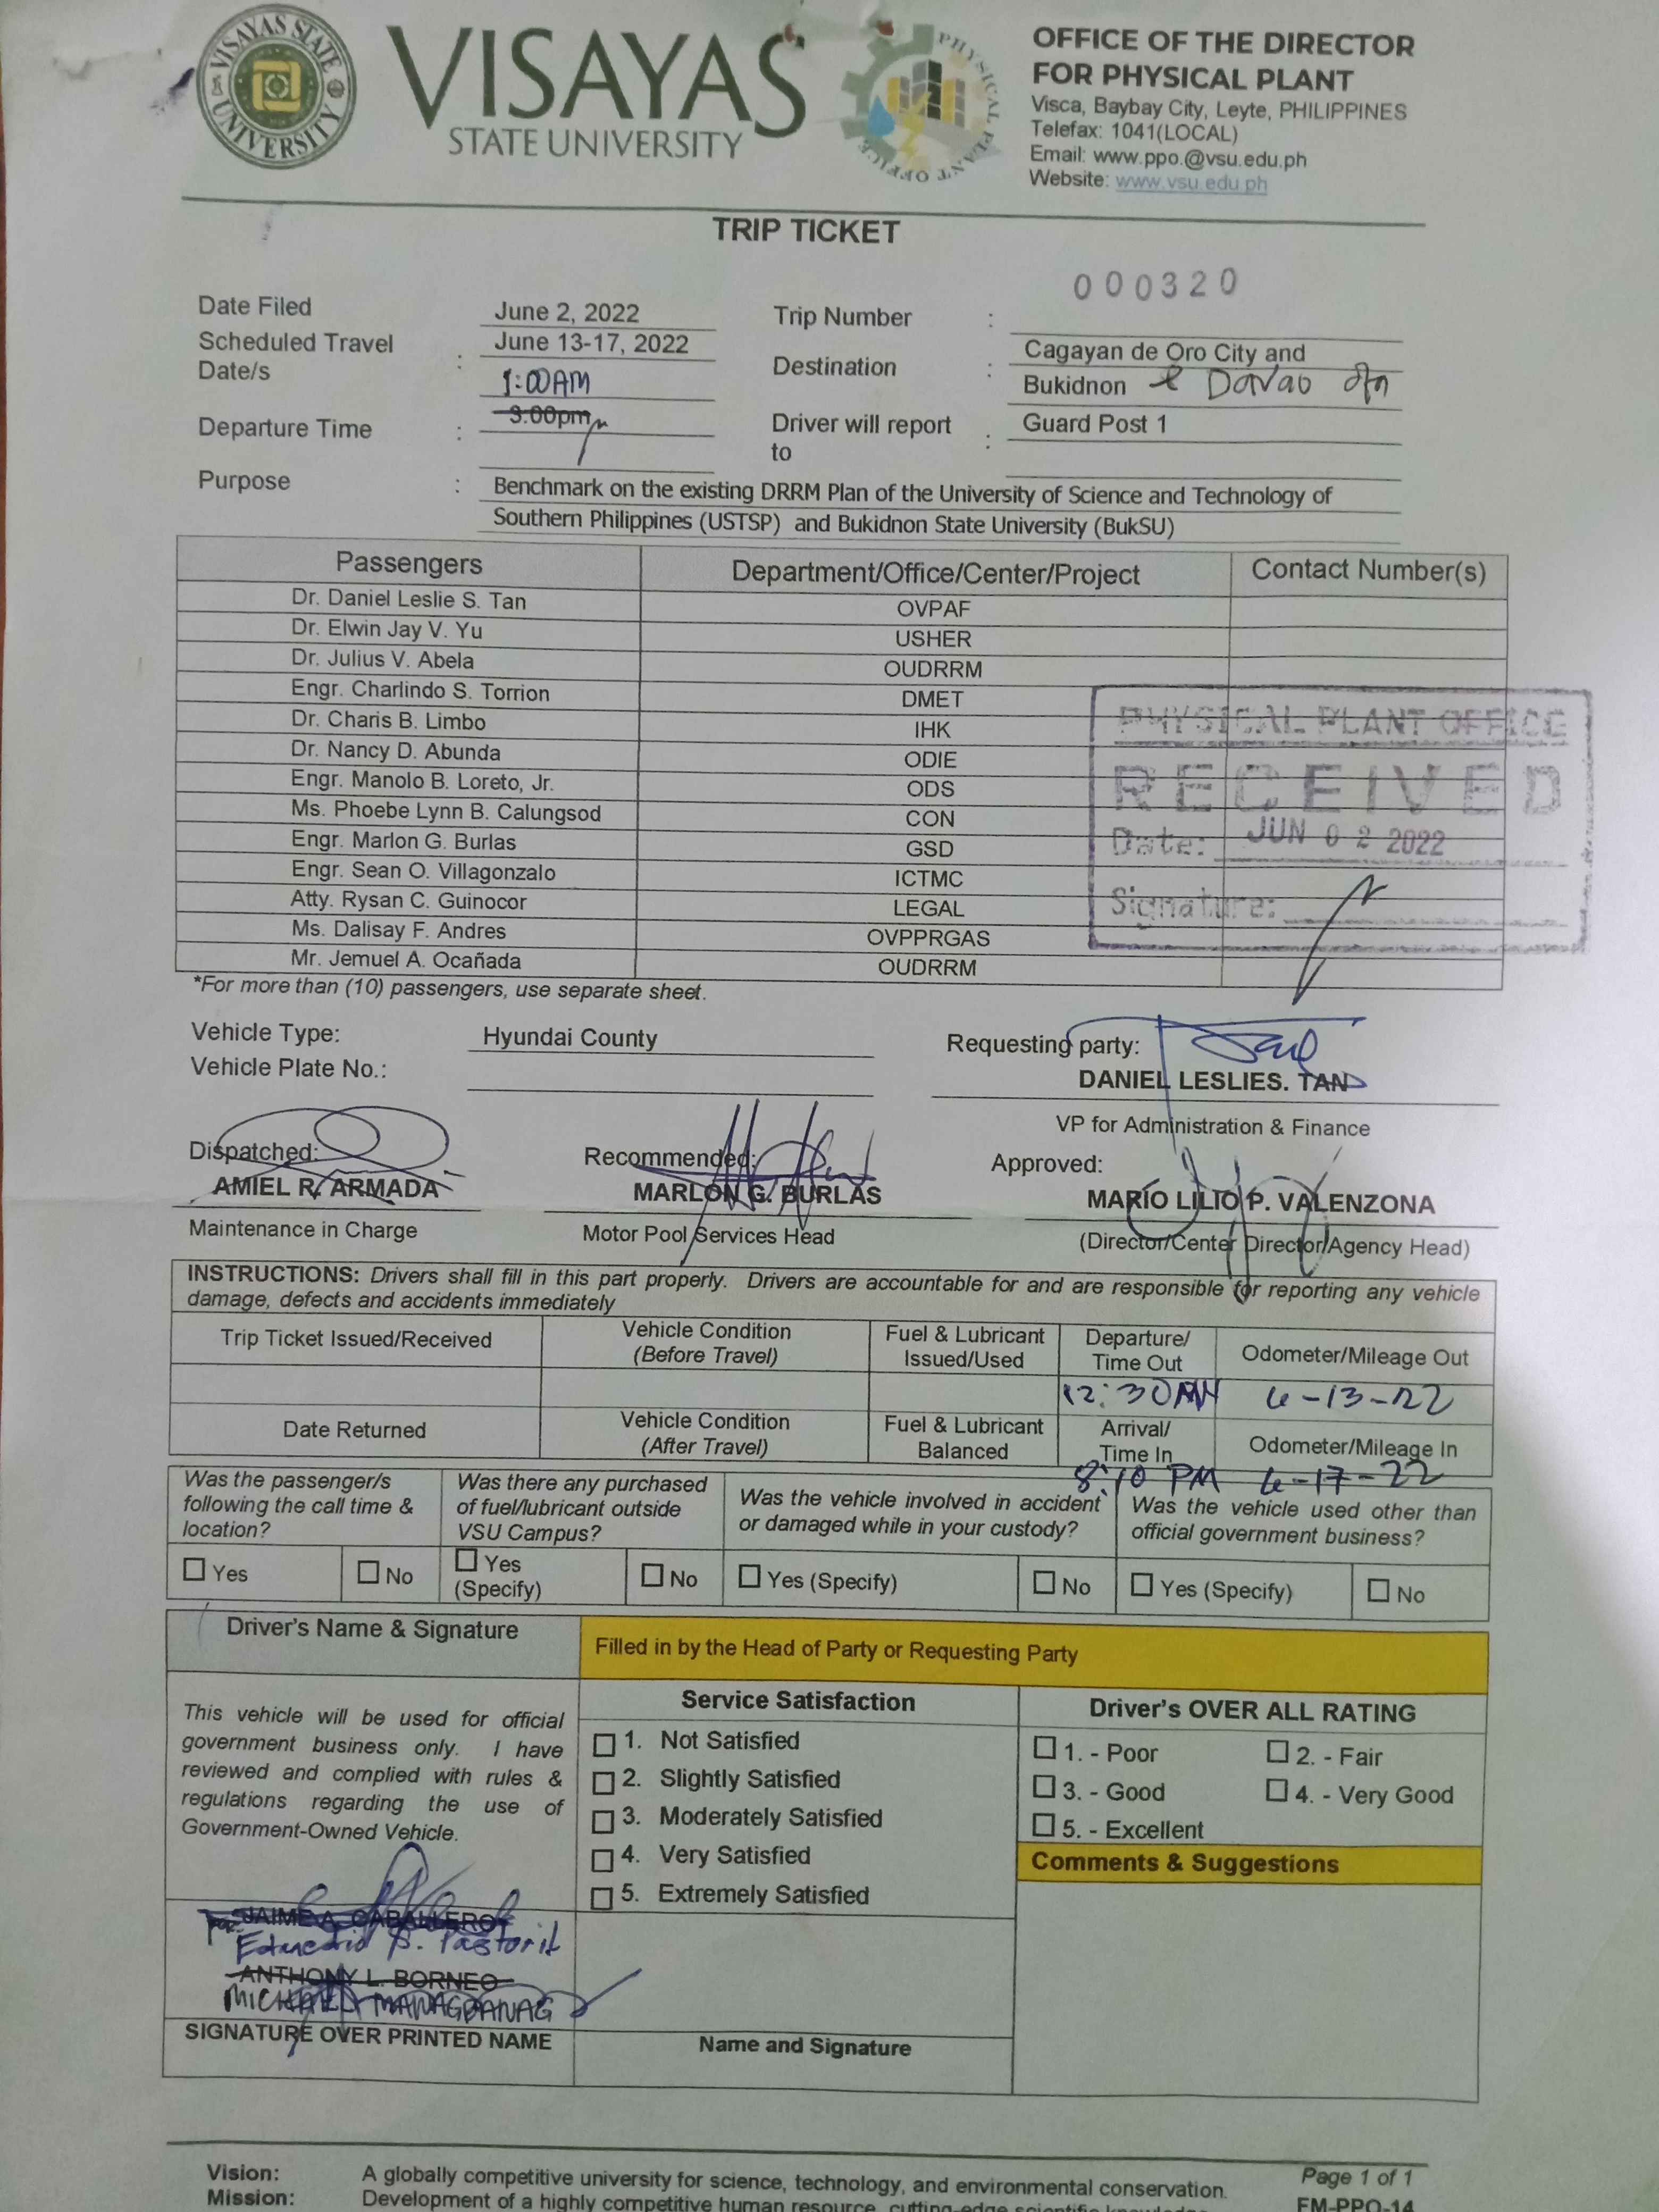 VISAYAS STATE UNIVERSITY
VISAYAS
STATE UNIVERSITY
PHYSICAL PLANT OFFICE
OFFICE OF THE DIRECTOR
FOR PHYSICAL PLANT
Visca, Baybay City, Leyte, PHILIPPINES
Telefax: 1041(LOCAL)
Email: www.ppo.@vsu.edu.ph
Website: www.vsu.edu.ph
TRIP TICKET
000320
Date Filed June 2, 2022 Trip Number :
Scheduled Travel Date/s : June 13-17, 2022 Destination : Cagayan de Oro City and
Bukidnon & Davao
1:00AM
Departure Time : 3:00pm Driver will report to : Guard Post 1
Purpose : Benchmark on the existing DRRM Plan of the University of Science and Technology of
Southern Philippines (USTSP) and Bukidnon State University (BukSU)
Passengers Department/Office/Center/Project Contact Number(s)
Dr. Daniel Leslie S. Tan OVPAF
Dr. Elwin Jay V. Yu USHER
Dr. Julius V. Abela OUDRRM
Engr. Charlindo S. Torrion DMET
Dr. Charis B. Limbo IHK
Dr. Nancy D. Abunda ODIE
Engr. Manolo B. Loreto, Jr. ODS
Ms. Phoebe Lynn B. Calungsod CON
Engr. Marlon G. Burlas GSD
Engr. Sean O. Villagonzalo ICTMC
Atty. Rysan C. Guinocor LEGAL
Ms. Dalisay F. Andres OVPPRGAS
Mr. Jemuel A. Ocañada OUDRRM
PHYSICAL PLANT OFFICE
RECEIVED
Date: JUN 02 2022
Signature:
*For more than (10) passengers, use separate sheet.
Vehicle Type: Hyundai County Requesting party:
Vehicle Plate No.: DANIEL LESLIES. TAN
VP for Administration & Finance
Dispatched: Recommended: Approved:
AMIEL R. ARMADA MARLON G. BURLAS MARIO LILIO P. VALENZONA
Maintenance in Charge Motor Pool Services Head (Director/Center Director/Agency Head)
INSTRUCTIONS: Drivers shall fill in this part properly. Drivers are accountable for and are responsible for reporting any vehicle
damage, defects and accidents immediately
Trip Ticket Issued/Received Vehicle Condition (Before Travel) Fuel & Lubricant Issued/Used Departure/ Time Out Odometer/Mileage Out
12:30AM 6-13-22
Date Returned Vehicle Condition (After Travel) Fuel & Lubricant Balanced Arrival/ Time In Odometer/Mileage In
8:10 PM 6-17-22
Was the passenger/s following the call time & location? Was there any purchased of fuel/lubricant outside VSU Campus? Was the vehicle involved in accident or damaged while in your custody? Was the vehicle used other than official government business?
Yes No Yes (Specify) No Yes (Specify) No Yes (Specify) No
Driver's Name & Signature Filled in by the Head of Party or Requesting Party
This vehicle will be used for official
government business only. I have
reviewed and complied with rules &
regulations regarding the use of
Government-Owned Vehicle.
Service Satisfaction
1. Not Satisfied
2. Slightly Satisfied
3. Moderately Satisfied
4. Very Satisfied
5. Extremely Satisfied
Driver's OVER ALL RATING
1. - Poor 2. - Fair
3. - Good 4. - Very Good
5. - Excellent
Comments & Suggestions
JAIME A. CABALLERO
P. Pastoril
ANTHONY L. BORNEO
MICHAEL MANAGBANAG
SIGNATURE OVER PRINTED NAME Name and Signature
Vision: A globally competitive university for science, technology, and environmental conservation.
Mission: Development of a highly competitive human resource, cutting-edge scientific knowledge
Page 1 of 1
FM-PPO-14